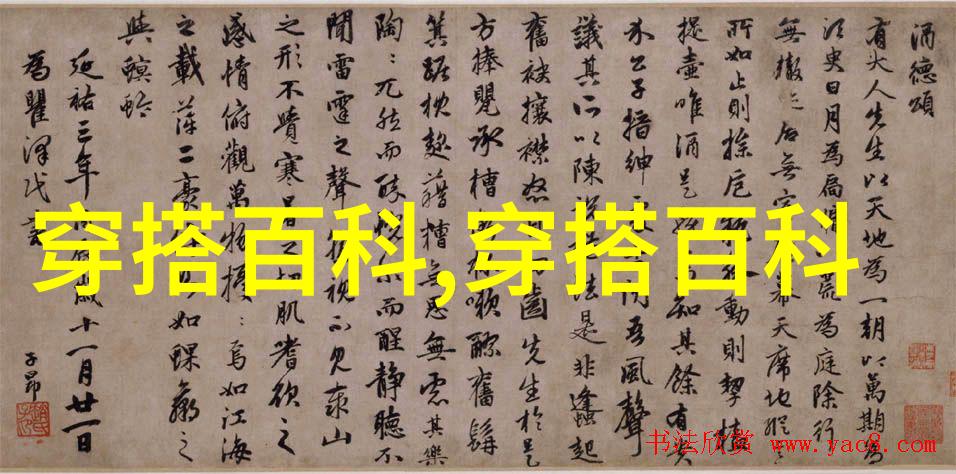 酒德頌
有大人先生以天地為一朝以萬期為
須臾日月為扃牖八荒為庭除行
無轍迹居無室幕天席地縱
所如止則操巵執觚動則挈榼
提壺唯酒是務焉知其餘有貴
介公子搢紳處士聞吾風聲
議其所以陳說禮法是非鋒起
奮袂攘襟怒目切齒先生於是
方捧甖承槽銜杯漱醪奮髯
箕踞枕麴藉糟無思無慮其樂
陶:兀然而醉怳尔而醒靜聽不
聞雷霆之聲孰視不見泰山
之形不覺寒暑之切肌嗜欲之
感情俯觀萬物擾:焉如江海
之載萍二豪侍側焉如蜾蠃之
與螟蛉
延祐三年歲十一月廿一日
為瞿澤民書
子昂
穿搭百科,穿搭百科
书法欣赏 www.yac8.com